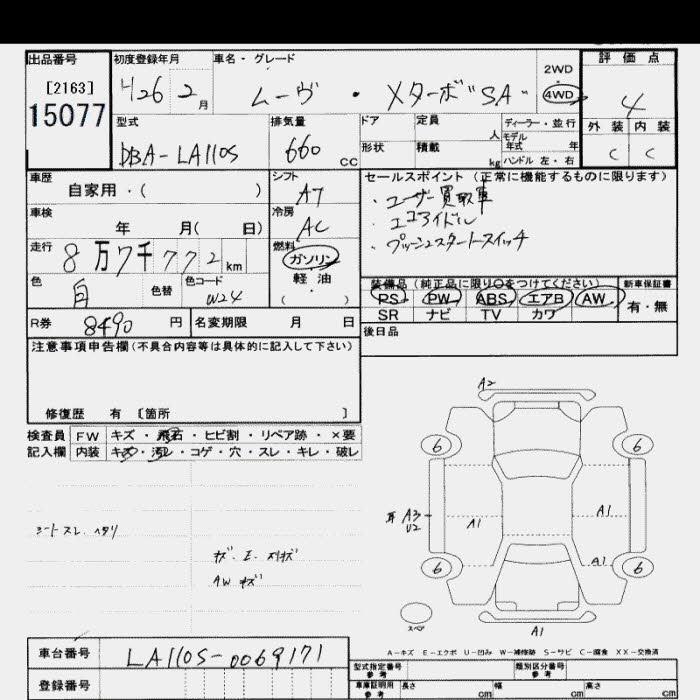 出品番号 初度登録年月 車名・グレード 評価点
[2163] 426 2月 ムーヴ ・ Xターボ"SA" 2WD 4WD 4
15077
型式 排気量 ドア 定員 人 ディーラー・並行 外装 内装
DBA-LA110S 660 CC 形状 積載 kg モデル年式 年 C C
ハンドル 左・右
車歴 シフト セールスポイント (正常に機能するものに限ります)
自家用・( ) AT ・ユーザー買取車
車検 冷房 ・エコアイドル
年 月( 日) AC ・プッシュスタートスイッチ
走行 燃料
8万7千772km ガソリン
色 色替 色コード 軽・油 装備品(純正品に限り○をつけてください) 新車保証書
白 W24 ( ) PS PW ABS エアB AW 有・無
SR ナビ TV カワ
R券 8490 円 名変期限 月 日 後日品
注意事項申告欄(不具合内容等は具体的に記入して下さい)
修復歴 有 〔箇所 〕
検査員 FW キズ・飛石・ヒビ割・リペア跡・×要
記入欄 内装 キズ・汚レ・コゲ・穴・スレ・キレ・破レ
A2
6 6
シートスレ、ヘタリ
A3 U2 A1 A1
キズ・E・スリキズ A1
AW キズ 6 6
スペア A1
A-キズ E-エクボ U-凹み W-補修跡 S-サビ C-腐食 XX-交換済
車台番号 LA110S-0069171 型式指定番号 参考 類別区分番号 参考
登録番号 車庫証明用 参考 長さ cm 幅 cm 高さ cm